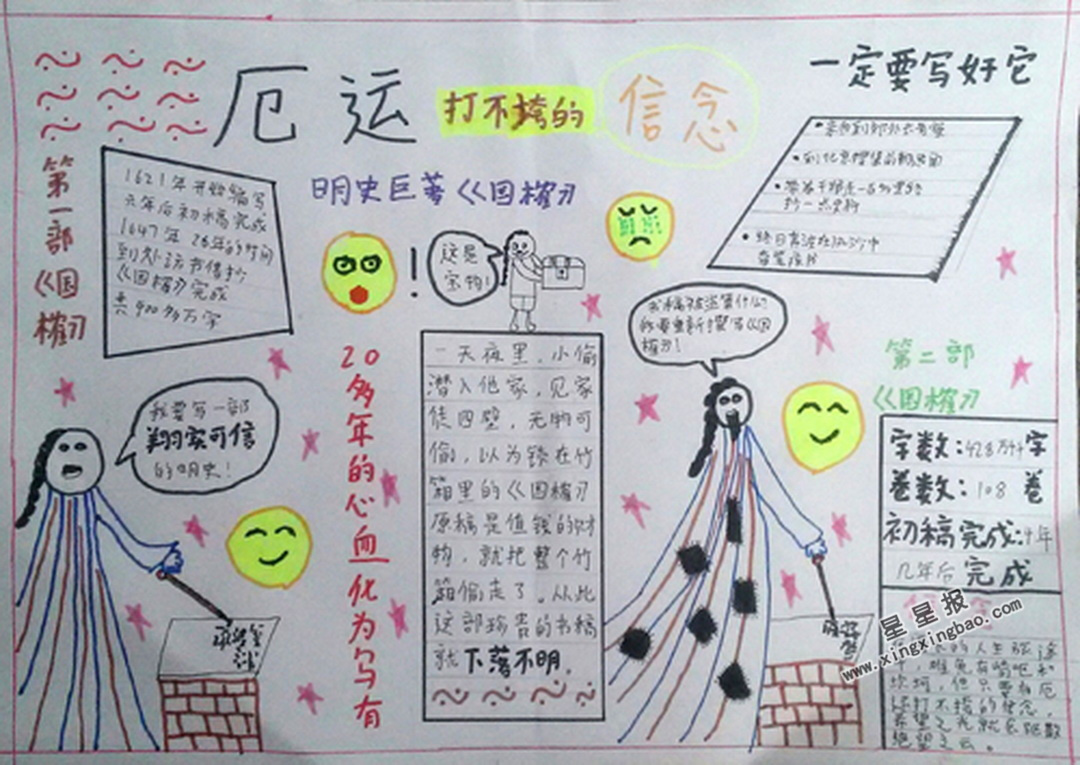 厄运打不垮的信念
一定要写好它
明史巨著《国榷》
第一部
《国
榷》
1621年开始编写
六年后初稿完成
1647年 26年的时间
到处访书借抄
《国榷》完成
共400多万字
这是
宝物!
!
我要写一部
翔实可信
的明史!
20多年的心血化为乌有
一天夜里,小偷
潜入他家,见家
徒四壁,无物可
偷,以为锁在竹
箱里的《国榷》
原稿是值钱的财
物,就把整个竹
箱偷走了。从此
这部珍贵的书稿
就下落不明。
书稿被盗算什么?
我要重新撰写《国
榷》!
终日奔波在
第二部
《国榷》
字数:428万4千字
卷数:108卷
初稿完成:4年
几年后完成
的人生
坎坷,但只要有厄
运打不垮的信念,
希望之光就会驱散
绝望之云。
星星报
www.xingxingbao.com